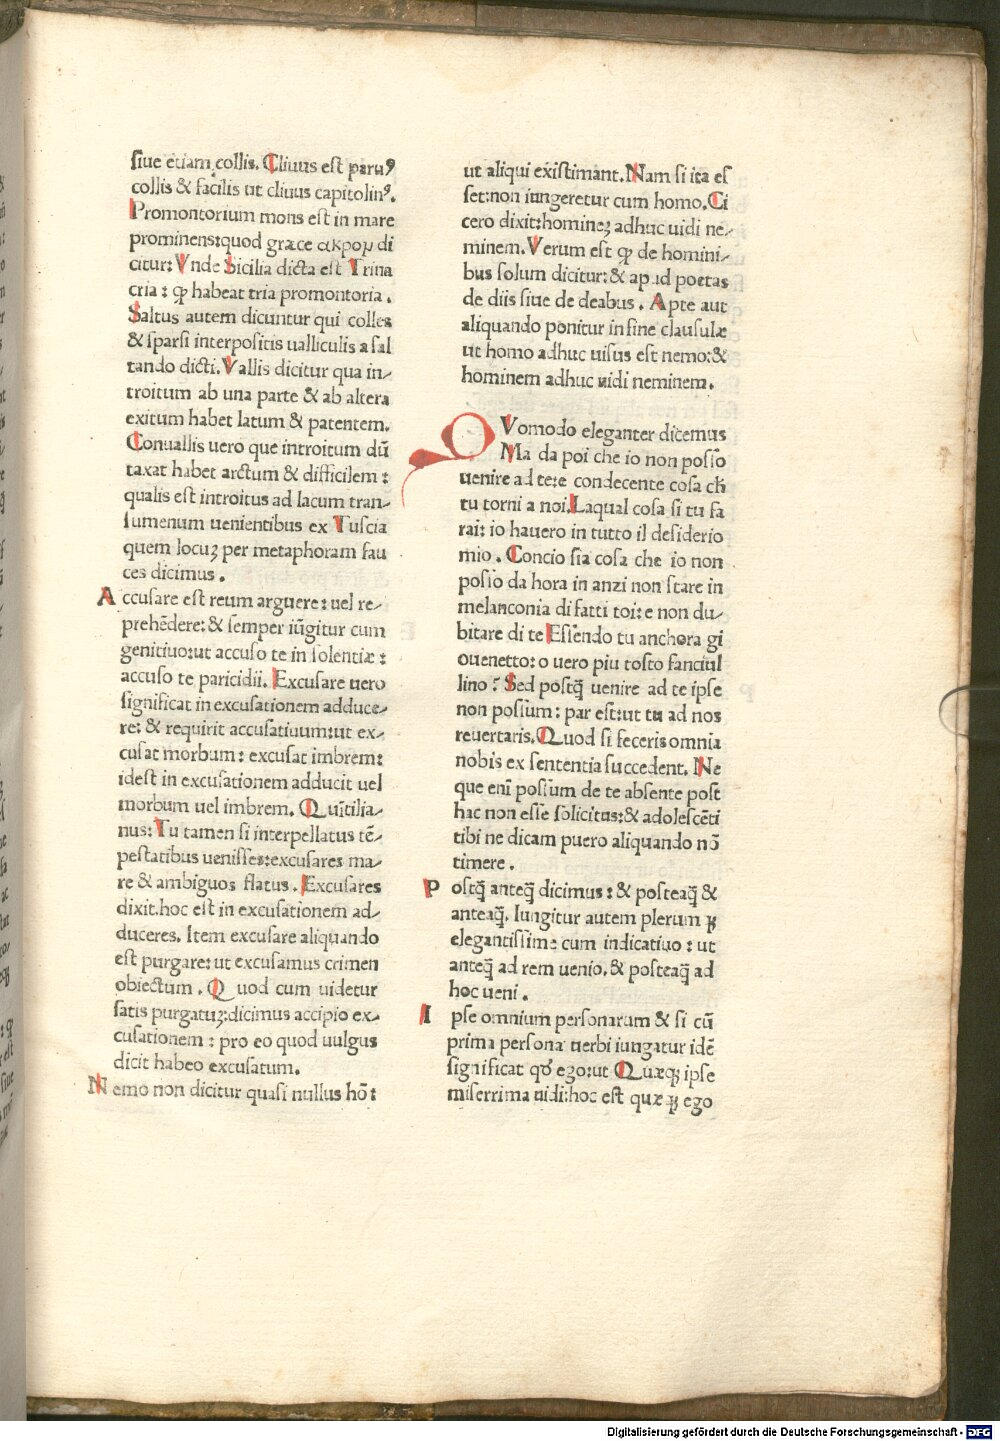 siue etiam collis. Cliuus est paruꝰ
collis & facilis ut cliuus capitolinꝰ.
Promontorium mons est in mare
prominens:quod græce ακρομ di
citur: Vnde Sicilia dicta est Trina
cria : ꝙ habeat tria promontoria .
Saltus autem dicuntur qui colles
& sparsi interpositis ualliculis a sal
tando dicti. Vallis dicitur qua in-
troitum ab una parte & ab altera
exitum habet latum & patentem.
Conuallis uero que introitum dū
taxat habet arctum & difficilem :
qualis est introitus ad lacum tran-
sumenum uenientibus ex Tuscia
quem locuꝫ per metaphoram fau
ces dicimus .
Accusare est reum arguere: uel re-
prehēdere: & semper iūgitur cum
genitiuo:ut accuso te in solentiæ :
accuso te paricidii. Excusare uero
significat in excusationem adduce-
re: & requirit accusatiuum:ut ex-
cusat morbum: excusat imbrem:
idest in excusationem adducit uel
morbum uel imbrem. Quītilia-
nus: Tu tamen si interpellatus tē-
pestatibus uenisses:excusares ma-
re & ambiguos flatus . Excusares
dixit.hoc est in excusationem ad-
duceres. Item excusare aliquando
est purgare: ut excusamus crimen
obiectum . Quod cum uidetur
satis purgatuꝫ:dicimus accipio ex-
cusationem : pro eo quod uulgus
dicit habeo excusatum.
Nemo non dicitur quasi nullus hō:
ut aliqui existimant. Nam si ita es
set:non iungeretur cum homo. Ci
cero dixit:homineꝫ adhuc uidi ne-
minem. Verum est ꝙ de homini-
bus solum dicitur: & apud poetas
de diis siue de deabus . Apte aut
aliquando ponitur in fine clausulæ
ut homo adhuc uisus est nemo: &
hominem adhuc uidi neminem.
QVomodo eleganter dicemus
Ma da poi che io non posso
uenire ad te:e condecente cosa ch̄
tu torni a noi. Laqual cosa si tu fa
rai: io hauero in tutto il desiderio
mio . Concio sia cosa che io non
posso da hora in anzi non stare in
melanconia di fatti toi: e non du-
bitare di te Essendo tu anchora gi
ouenetto: o uero piu tosto fanciul
lino ? Sed postq̄ uenire ad te ipse
non possum : par est:ut tu ad nos
reuertaris. Quod si feceris omnia
nobis ex sententia succedent. Ne
que enī possum de te absente post
hac non esse solicitus: & adolescēti
tibi ne dicam puero aliquando nō
timere .
Postq̄ anteq̄ dicimus : & posteaq̄ &
anteaq̄. Iungitur autem plerum ꝗ
elegantissime cum indicatiuo : ut
anteq̄ ad rem uenio. & posteaq̄ ad
hoc ueni .
Ipse omnium personarum & si cū
prima persona uerbi iungatur idē
significat qđ ego:ut Quæqꝫ ipse
miserrima uidi:hoc est quæ ꝗ ego
Digitalisierung gefördert durch die Deutsche Forschungsgemeinschaft - DFG